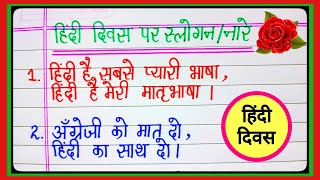 हिंदी दिवस पर स्लोगन/नारे
1. हिंदी है सबसे प्यारी भाषा,
हिंदी है मेरी मातृभाषा।
2. अँग्रेजी को मात दो,
हिंदी का साथ दो।
हिंदी
दिवस